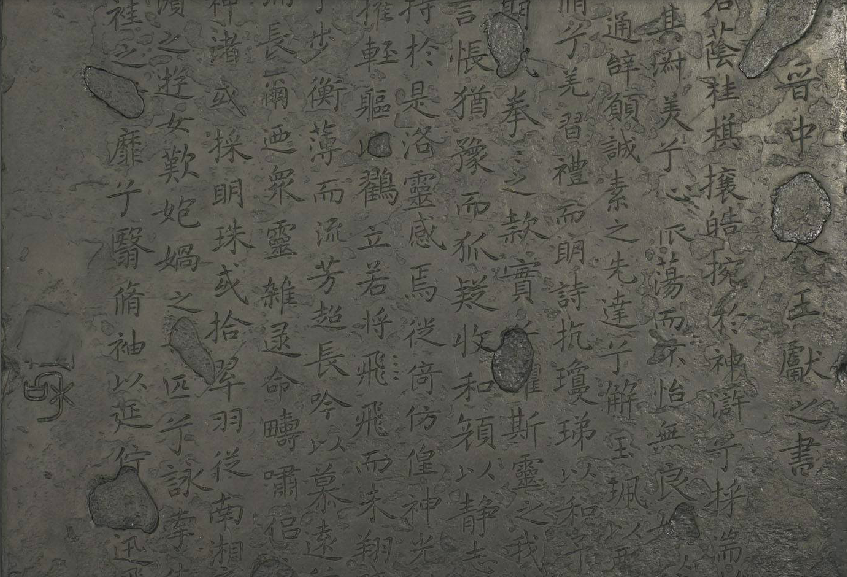 晉中令王獻之書
右蔭桂棋攘皓捥於神滸兮採湍
其淑美兮心振蕩而不怡無良
通辭願誠素之先達兮解玉珮以要
脩兮羌習禮而明詩抗瓊珶以和予
期拳〻之款實兮懼斯靈之我
言悵猶豫而狐疑收和顏以静志
持於是洛靈感焉徙倚仿偟神光
擢輕軀以鶴立若將飛飛而未翔
步衡薄而流芳超長吟以慕遠
而長爾迺衆靈雜遝命疇嘯侶
神渚或採明珠或拾翠羽從南湘
瀨之遊女歎匏媧之匹兮詠牽
袿之靡兮翳脩袖以延佇迅飛